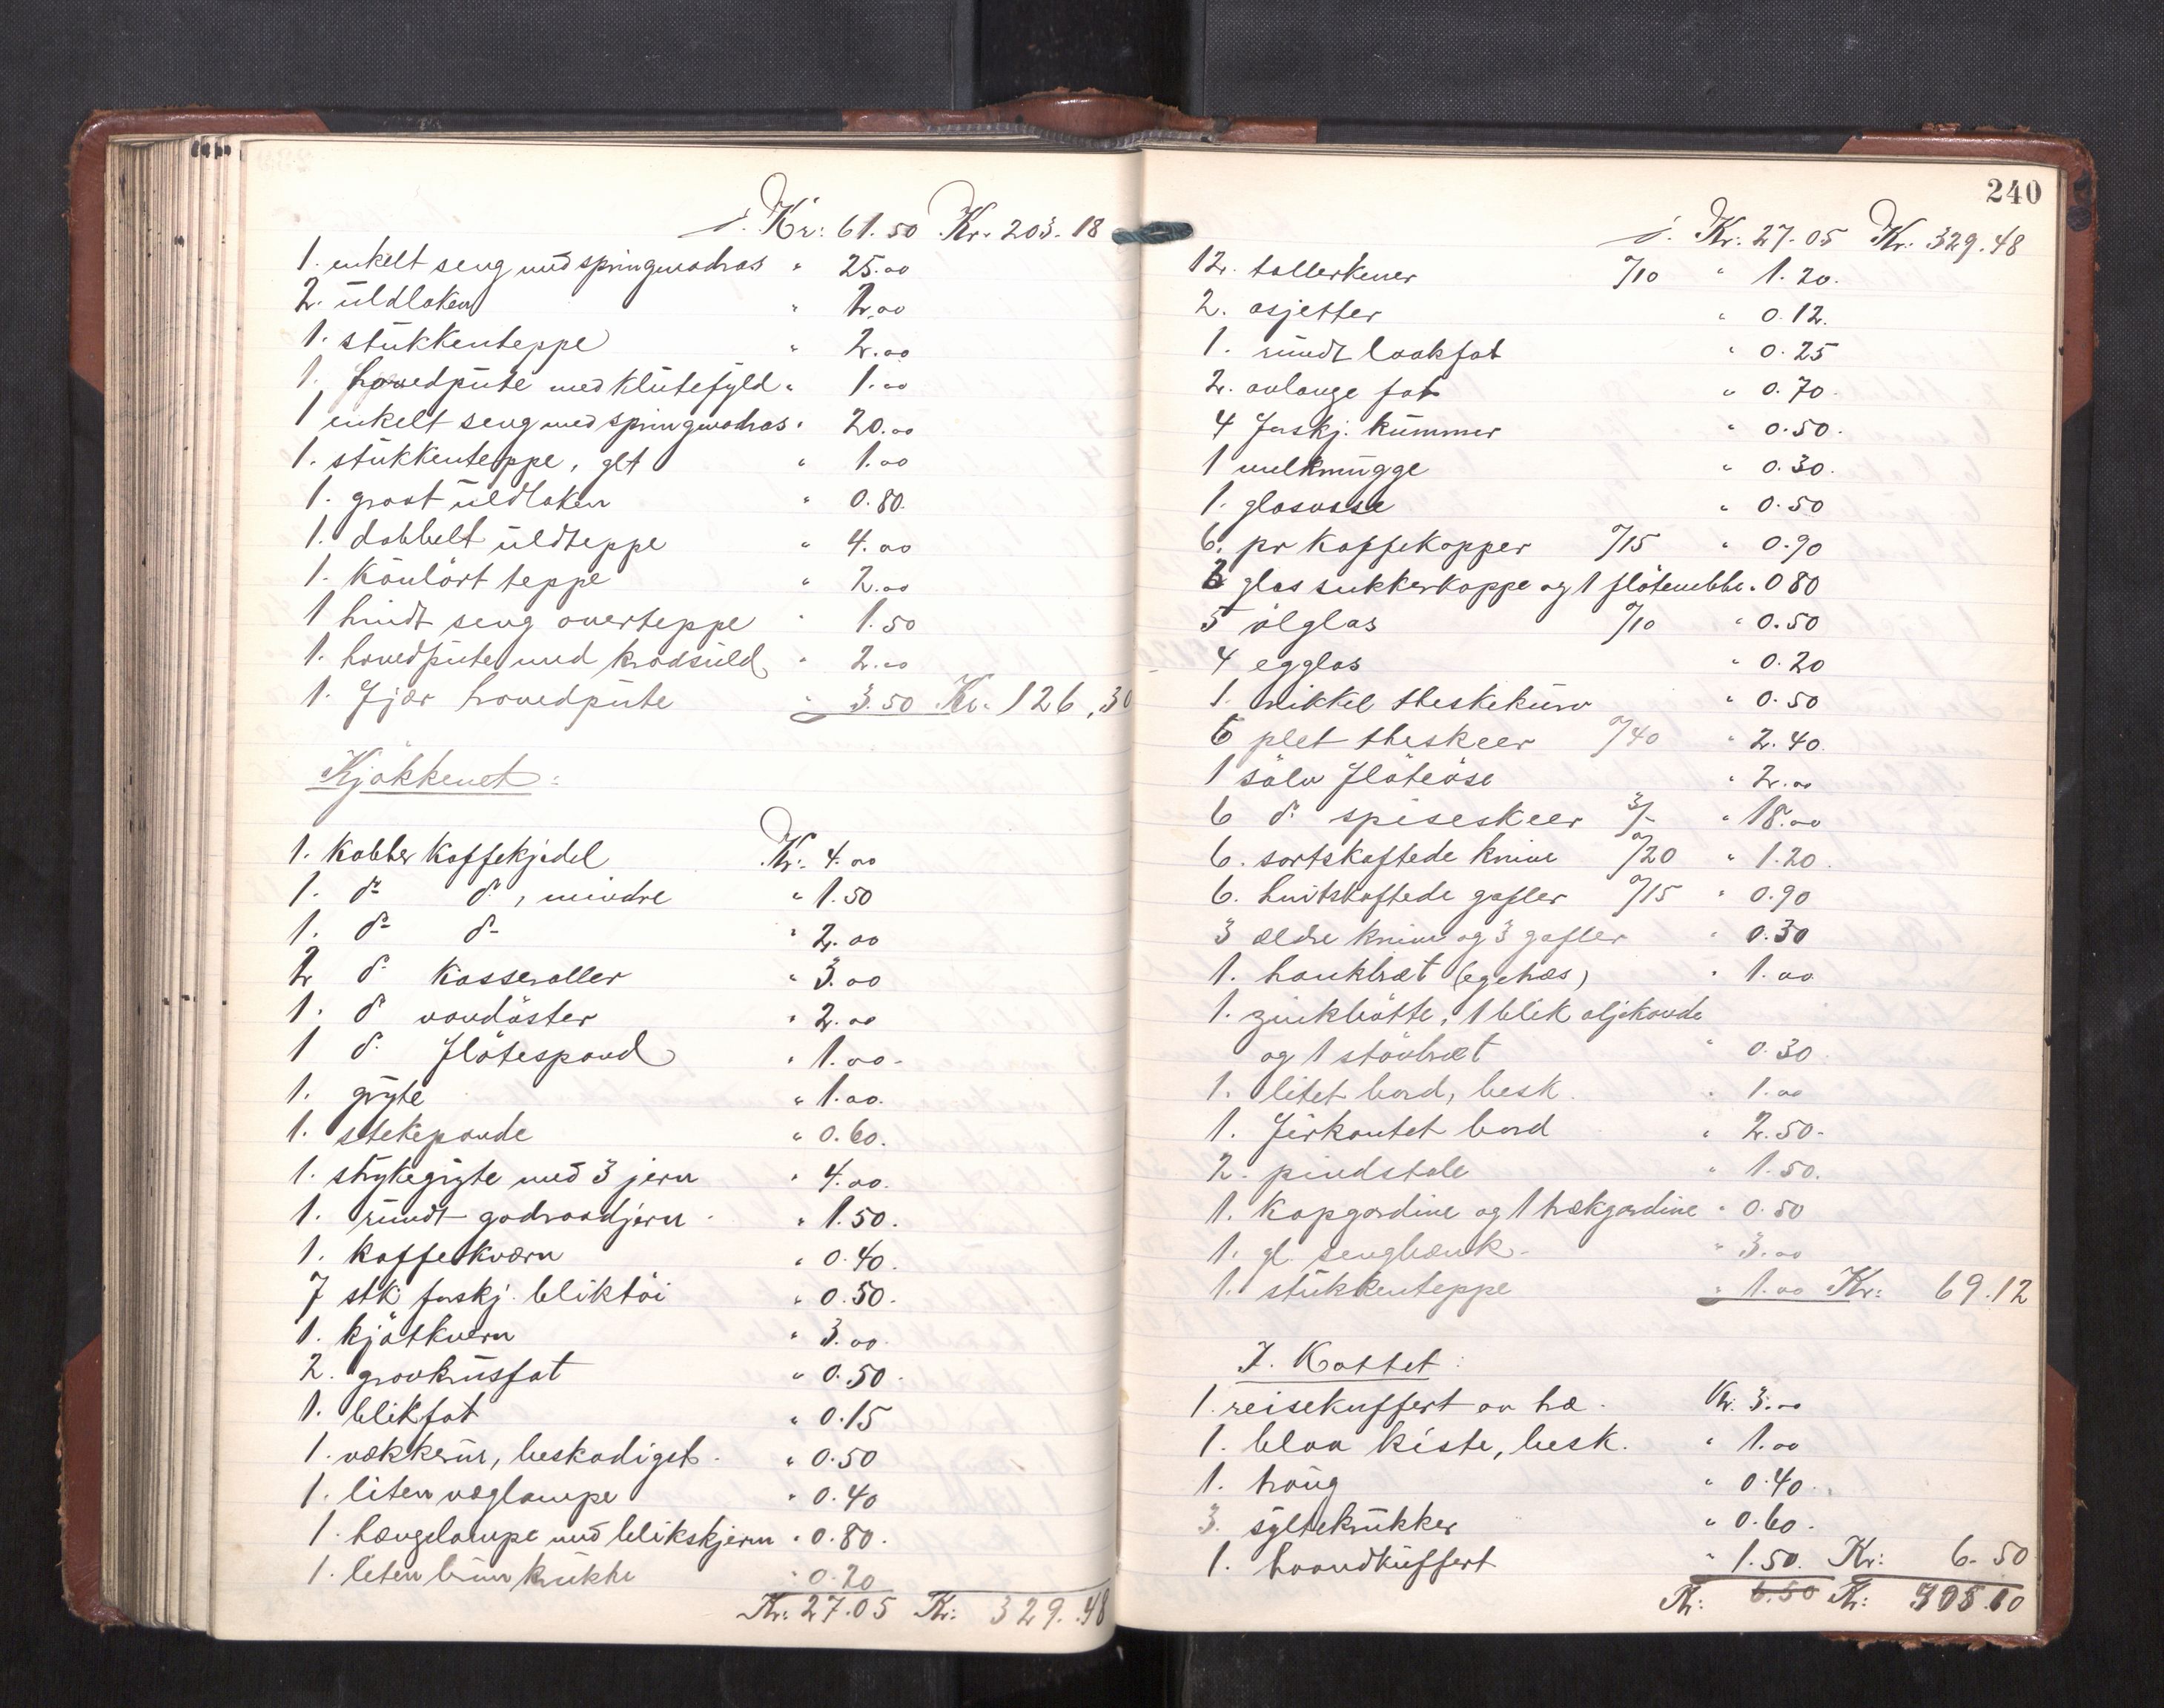 /. Kr: 61.50 Kr. 203.18
1. enkelt seng med springmadras " 25.00
2. uldlaken " 2.00
1. stükkenteppe " 2.00
1. hovedpüte med klütefyld " 1.00
1 enkelt seng med springmadras " 20.00
1. stükkenteppe, glt " 1.00
1. graat üldlaken " 0.80.
1. dobbelt üldteppe " 4.00
1. Kõulört teppe " 2.00
1 hvidt seng overteppe " 1.50
1. hovedpüte med kradsüld " 2.00
1. fjær hovedpüte " 3.50 Kr. 126,30
Kjökkenet:
1. Kobber Kaffekjedel Kr: 4.00
1. do do, mindre " 1.50
1. do do " 2.00
2 do Kasseroller " 3.00
1. do vandöster " 2.00
1 do flötespand " 1.00-
1. gryte " 1.00.
1. stekepande " 0.60.
1. strykegryte med 3 jern " 4.00.
1. rundt godraadjern " 1.50.
1. kaffekværn " 0.40.
7 stk forskj. bliktöi " 0.50.
1. kjötkvern " 3.00.
2. gravkrüsfat " 0.50.
1. blikfat " 0.15
1. vækkerür, beskadiget. " 0.50
1. liten væglampe " 0.40
1. hængelampe med blikskjerm " 0.80.
1. liten brün krükke " 0.20
Kr: 27.05 Kr: 329.48
240
/. Kr. 27.05 Kr: 329.48
12. tallerkener o/10 " 1.20.
2. asjetter " 0.12.
1. ründt laakfat " 0.25
2. avlange fat " 0.70.
4 forskj. kümmer " 0.50.
1 melkmügge " 0.30.
1. glasvase " 0.50
6. pr kaffekopper o/15 " 0.90
3 glas sukkerkoppe og 1 flötemble. 0 80
5 ölglas o/10 " 0.50
4 egglas " 0.20
1. nikkel theskekürv " 0.50
6 plet theskeer o/40 " 2.40.
1 sölv flöteöse " 2.00
6 do spiseskeer 3/- " 18.00
6. sortskaftede knive o/20 " 1.20.
6. hvitskaftede gafler o/15 " 0.90
3 ældre knive og 3 gafler " 0.30
1. hankbræt (egetræs) " 1.00
1. zinkbötte, 1 blik oljekande
og 1 stövbræt " 0.30
1. litet bord, besk. " 1.00
1. firkantet bord " 2.50-
2. pindstole " 1.50.
1. Kapgardine og 1 trækgardine " 0.50
1. gl. sengbænk. " 3.00
1. stükkenteppe " 1.00 Kr: 69.12
I. Kottet:
1. reisekuffert av træ. Kr. 3.00
1. blaa kiste, besk. " 1.00
1. traüg " 0.40.
3. syltekrükker " 0.60.
1. haandküffert " 1.50. Kr: 6.50
Kr: 6.50 Kr: 405.10